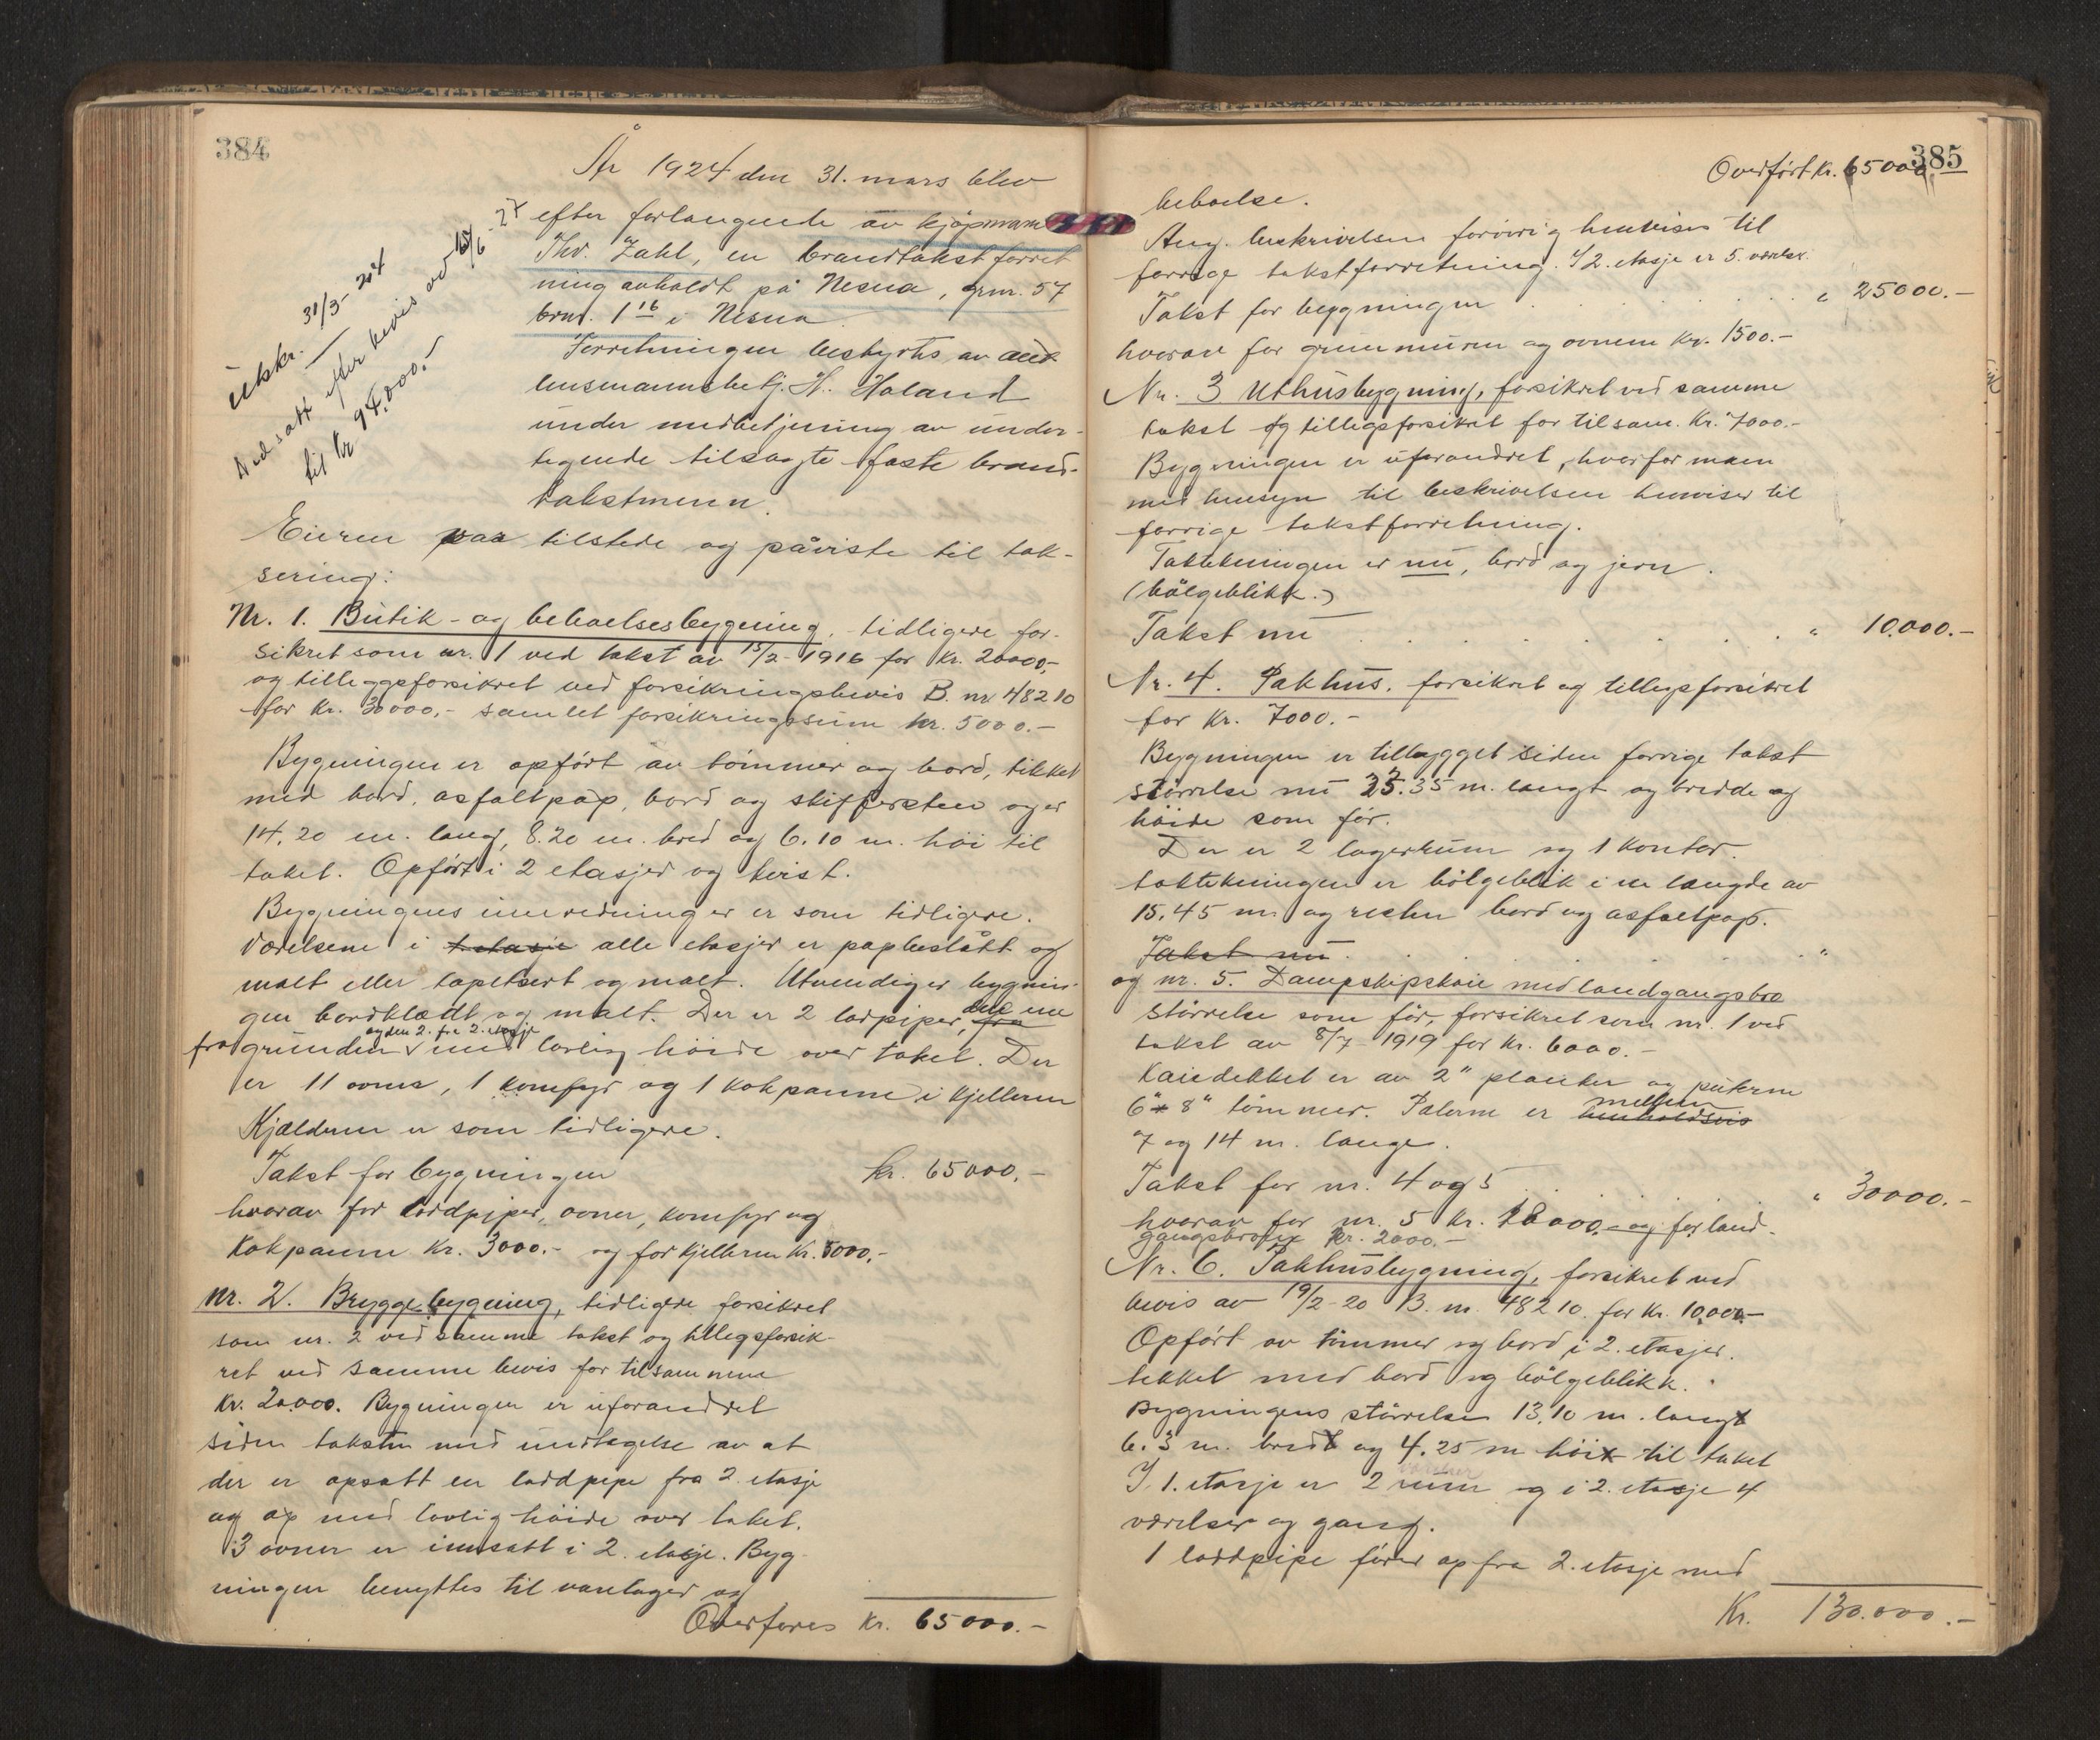 384
År 1924 den 31. mars blev
efter forlangende av kjøpmann
Thv. Zahl, en brandtakstforret
ning avholdt på Nesna, grnr. 57
brnr. 1 16 i Nesna.
Forretningen bestyrtes av
lensmannsbetj. H. Haland
under medbetjening av under-
tegnede tilsagte faste brand-
takstmenn.
Utskr. 31/3-24
Nedsatt efter bevis av 15/6-27
til kr 94.000.-
Eieren var tilstede og påviste til tak-
sering:
Nr. 1. Butik- og beboelsesbygning, tidligere for-
sikret som nr. 1 ved takst av 15/2-1916 for kr. 20000,-
og tilleggsforsikret ved forsikringsbevis B. nr 48210
for kr. 30000,- samlet forsikringssum kr. 5000.-
Bygningen er opført av tømmer og bord, tekket
med bord, asfaltpap, bord og skiffersten og er
14.20 m. lang, 8.20 m. bred og 6.10 m. høi til
taket. Opført i 2 etasjer og kvist.
Bygningens innredning er som tidligere.
Værelsene i 1 etasje alle etasjer er papbeslått og
malt eller tapetsert og malt. Utvendig er bygnin-
gen bordklædt og malt. Der er 2 ladpiper, fra den ene
fra grunden og den 2. fra 2. etasje med lovlig høide over taket. Der
er 11 ovner, 1 komfyr og 1 kokpanne i kjelleren
Kjælderen er som tidligere.
Takst for bygningen kr. 65000.-
hvorav for laddpiper, ovner, komfyr og
kokpanne kr. 3000.- og for kjelleren kr. 5000,-
Nr. 2. Bryggebygning, tidligere forsikret
som nr. 2 ved samme takst og tillegsforsik-
ret ved samme bevis for tilsammen
kr. 20.000. Bygningen er uforandret
siden taksten med undtagelse av at
der er opsatt en laddpipe fra 2. etasje
og op med lovlig høide over taket.
3 ovner er innsatt i 2. etasje. Byg-
ningen benyttes til varelager og
Overføres kr. 65000.-
385
Overført kr. 65000.
beboelse.
Ang. beskrivelsen forøvrig henvises til
forrige takstforretning. I 2. etasje er 5. værelser.
Takst for bygningen " 25000.-
hvorav for grunnmuren og ovnene kr. 1500.-
Nr. 3 Uthusbygning, forsikret ved samme
takst og tillegsforsikret for tilsam. kr. 7000.-
Bygningen er uforandret, hvorfor man
med hensyn til beskrivelsen henviser til
forrige takstforretning.
Taktekningen er nu, bord og jern.
(bølgeblikk.)
Takst nu " 10.000.-
Nr. 4. Pakhus, forsikret og tillegsforsikret
for kr. 7000.-
Bygningen er tilbygget siden forrige takst
størrelse nu 23.35 m. langt og bredde og
høide som før.
Der er 2 lagerrum og 1 kontor.
taktekningen er bølgeblik i en længde av
15.45 m. og resten bord og asfaltpap.
Takst nu "
og nr. 5. Dampskipskaie med landgangsbro
størrelse som før, forsikret som nr. 1 ved
takst av 8/7-1919 for kr. 6000.-
Kaiedekket er av 2" planker og puterne
6" x 8" tømmer. Pælerne er henholdsvis mellem
7 og 14 m. lange.
Takst for nr. 4 og 5 " 30000.-
hvorav for nr. 5 kr. 18000.- og for land-
gangsbroen kr. 2000.-
Nr. 6. Pakhusbygning, forsikret ved
bevis av 19/2-20 B. nr. 48210. for kr. 10.000.-
Opført av tømmer og bord i 2. etasjer.
tekket med bord og bølgeblikk.
Bygningens størrelse 13,10 m. langt
6.3 m. bredt og 4.25 m høit til taket
I 1. etasje er 2 rum og i 2. etasje 4
værelser og gang.
1 laddpipe fører op fra 2. etasje med
Kr. 130.000.-